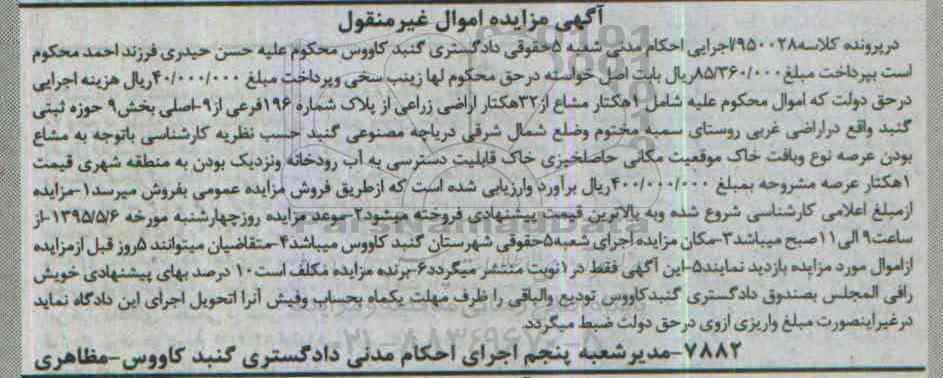 آگهی مزایده اموال غیرمنقول
درپرونده کلاسه ۹۵۰۰۲۸/اجرایی احکام مدنی شعبه ۵حقوقی دادگستری گنبد کاووس محکوم علیه حسن حیدری فرزند احمد محکوم
است بپرداخت مبلغ ۸۵/۳۶۰/۰۰۰ریال بابت اصل خواسته درحق محکوم لها زینب سخی وپرداخت مبلغ ۴۰/۰۰۰/۰۰۰ریال هزینه اجرایی
درحق دولت که اموال محکوم علیه شامل ۱هکتار مشاع از۳۲هکتار اراضی زراعی از پلاک شماره ۱۹۶فرعی از۹-اصلی بخش۹ حوزه ثبتی
گنبد واقع دراراضی غربی روستای سمبه مختوم وضلع شمال شرقی دریاچه مصنوعی گنبد حسب نظریه کارشناسی باتوجه به مشاع
بودن عرصه نوع وبافت خاک موقعیت مکانی حاصلخیزی خاک قابلیت دسترسی به آب رودخانه ونزدیک بودن به منطقه شهری قیمت
۱هکتار عرصه مشروحه بمبلغ ۴۰۰/۰۰۰/۰۰۰ریال برآورد وارزیابی شده است که ازطریق فروش مزایده عمومی بفروش میرسد۱-مزایده
ازمبلغ اعلامی کارشناسی شروع شده وبه بالاترین قیمت پیشنهادی فروخته میشود۲-موعد مزایده روزچهارشنبه مورخه ۱۳۹۵/۵/۶-از
ساعت۹ الی۱۱صبح میباشد۳-مکان مزایده اجرای شعبه۵حقوقی شهرستان گنبد کاووس میباشد۴-متقاضیان میتوانند ۵روز قبل ازمزایده
ازاموال مورد مزایده بازدید نمایند۵-این آگهی فقط در۱نوبت منتشر میگردد۶-برنده مزایده مکلف است۱۰ درصد بهای پیشنهادی خویش
رافی المجلس بصندوق دادگستری گنبدکاووس تودیع والباقی را ظرف مهلت یکماه بحساب وفیش آنرا اتحویل اجرای این دادگاه نماید
درغیراینصورت مبلغ واریزی ازوی درحق دولت ضبط میگردد.
۷۸۸۲-مدیرشعبه پنجم اجرای احکام مدنی دادگستری گنبد کاووس-مظاهری
ParsNamadData
۰۲۱-۸۸۳۴۹۶۷۰